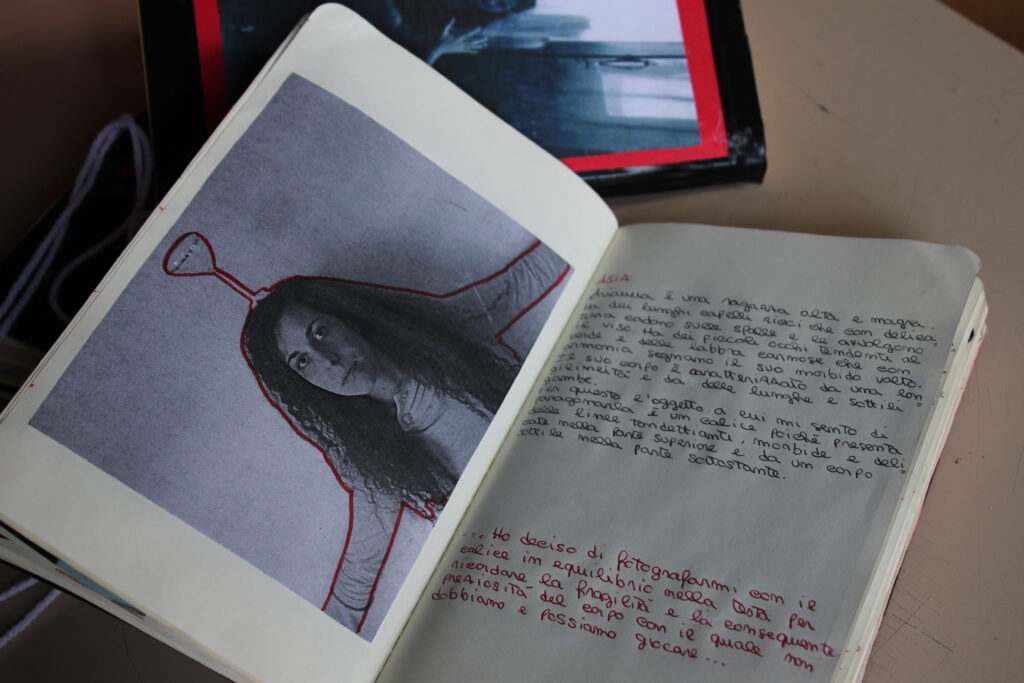 ASIA
Arianna è una ragazza alta e magra.
dei lunghi capelli ricci che con delica
cadono sulle spalle e le avvolgono
il viso. Ha dei piccoli occhi tendenti al
e delle labbra carnose che con
armonia segnano il suo morbido volto.
Il suo corpo è caratterizzato da una lon
gilineità e da delle lunghe e sottili
gambe.
Per questo l'oggetto a cui mi sento di
paragonarla è un calice poichè presenta
delle linee tondeggianti, morbide e deli=
cate nella parte superiore e da un corpo
sottile nella parte sottostante.
... Ho deciso di fotografarmi con il
calice in equilibrio nella testa per
ricordare la fragilità e la conseguente
preziosità del corpo con il quale non
dobbiamo e possiamo giocare...